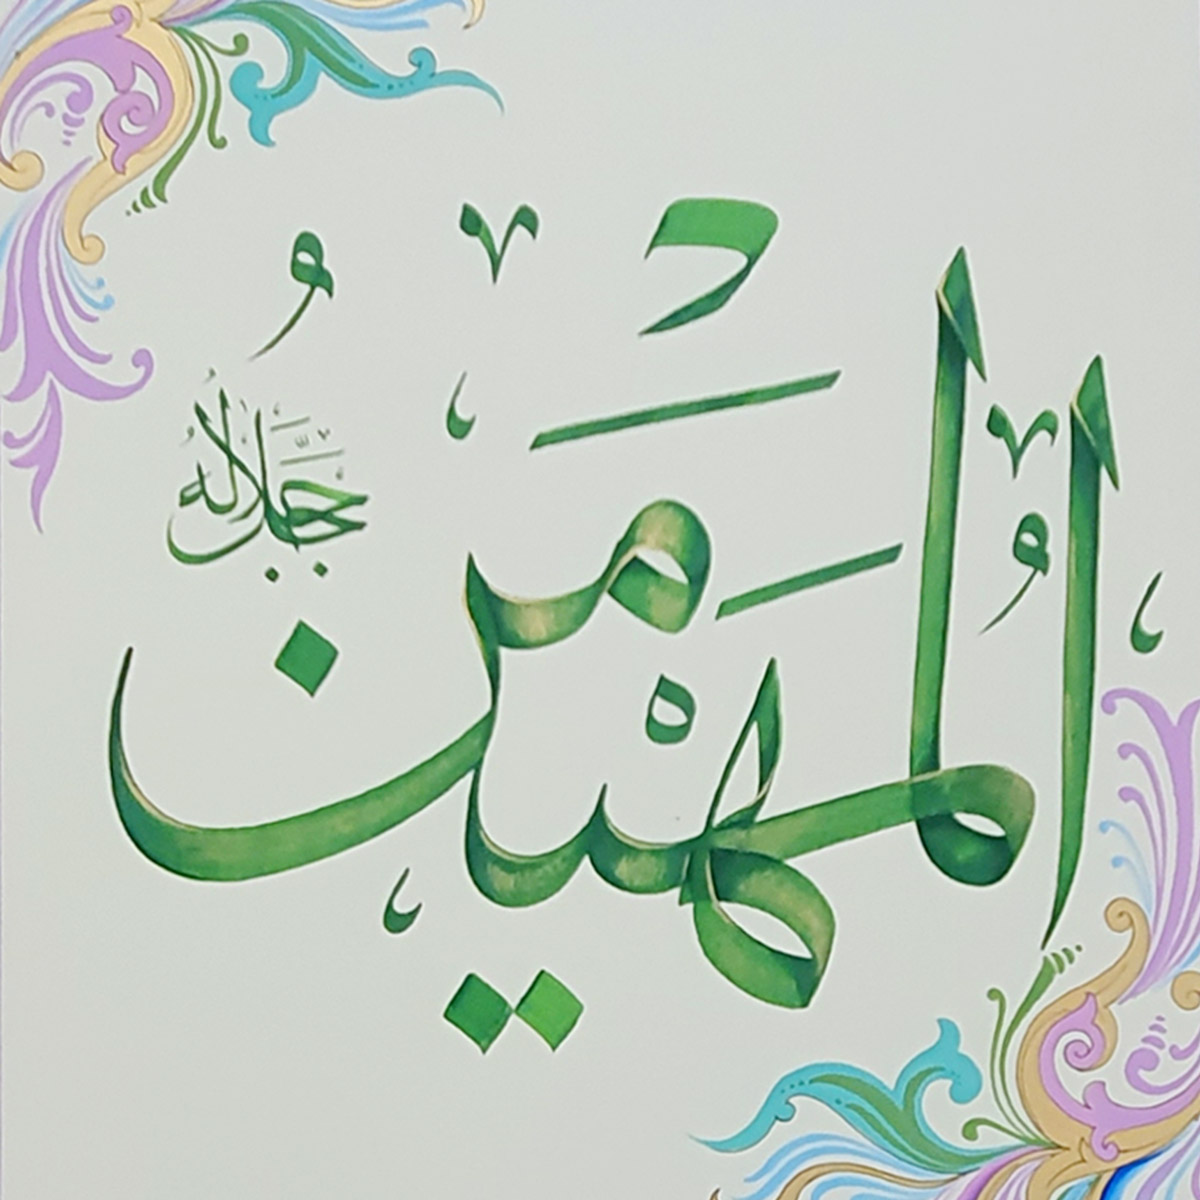 الْمُهَيْمِنُ
جَلَّ جَلَالُهُ